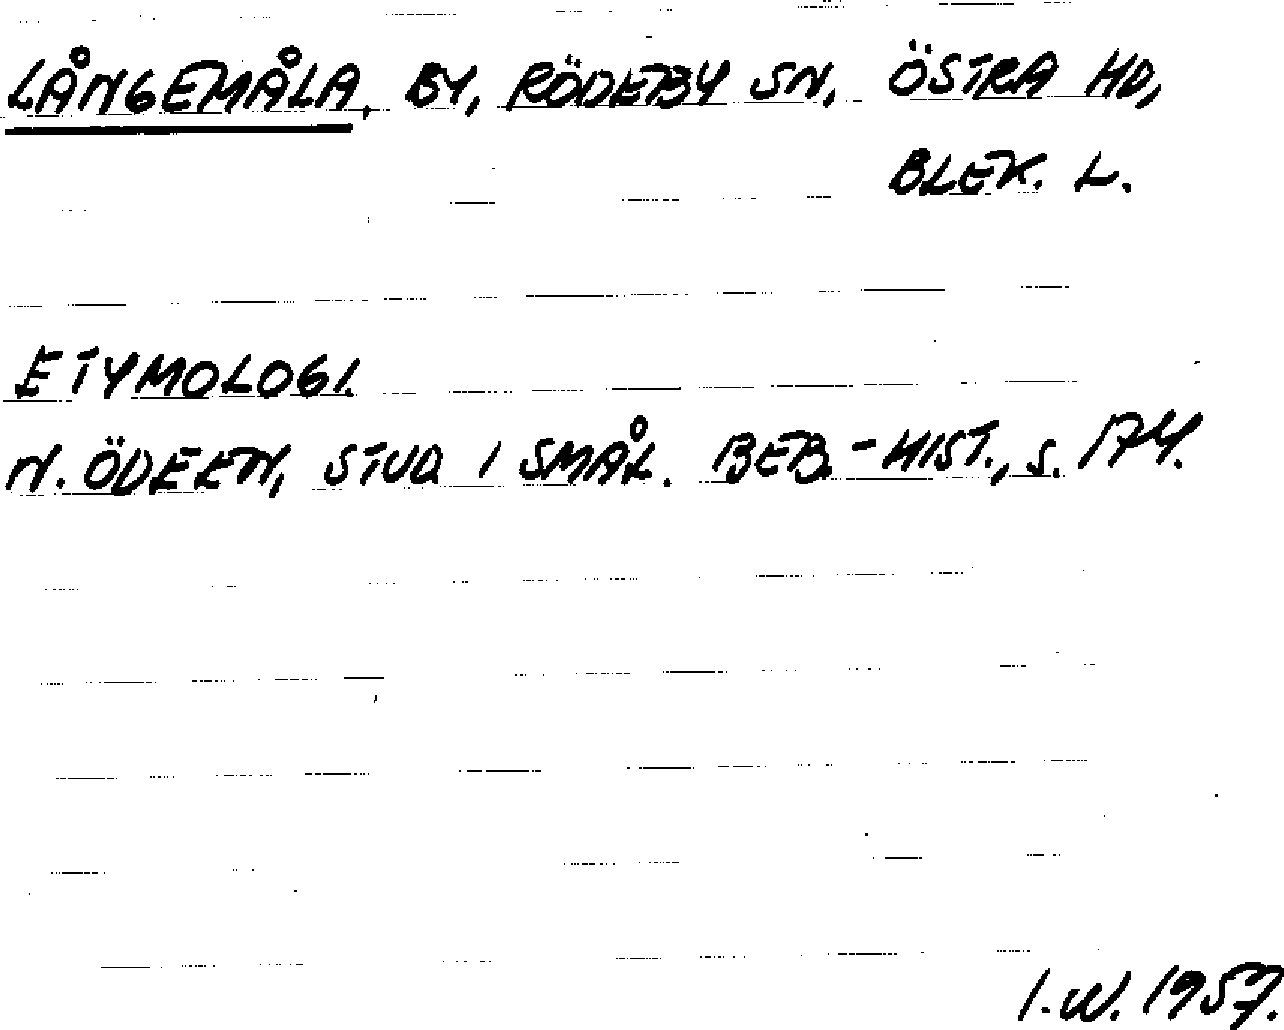 LÅNGEMÅLA, BY, RÖDEBY SN, ÖSTRA HD,
BLEK. L.
ETYMOLOGI.
N. ÖDEEN, STUD I SMÅL. BEB.-HIST., S. 174.
I.W. 1957.